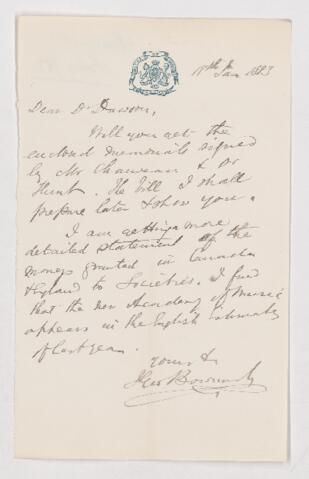 17th Jan 1883
Dear Dr Dawson,
Will you get the
enclosed memorials signed
by Mr Chauveau & Dr
Hunt. The bill I shall
prepare later & show you.
I am getting a more
detailed statement of the
moneys granted in Canada
& England to Societies. I find
that the new Academy of Music
appears in the English estimates
of last year.
Yours &